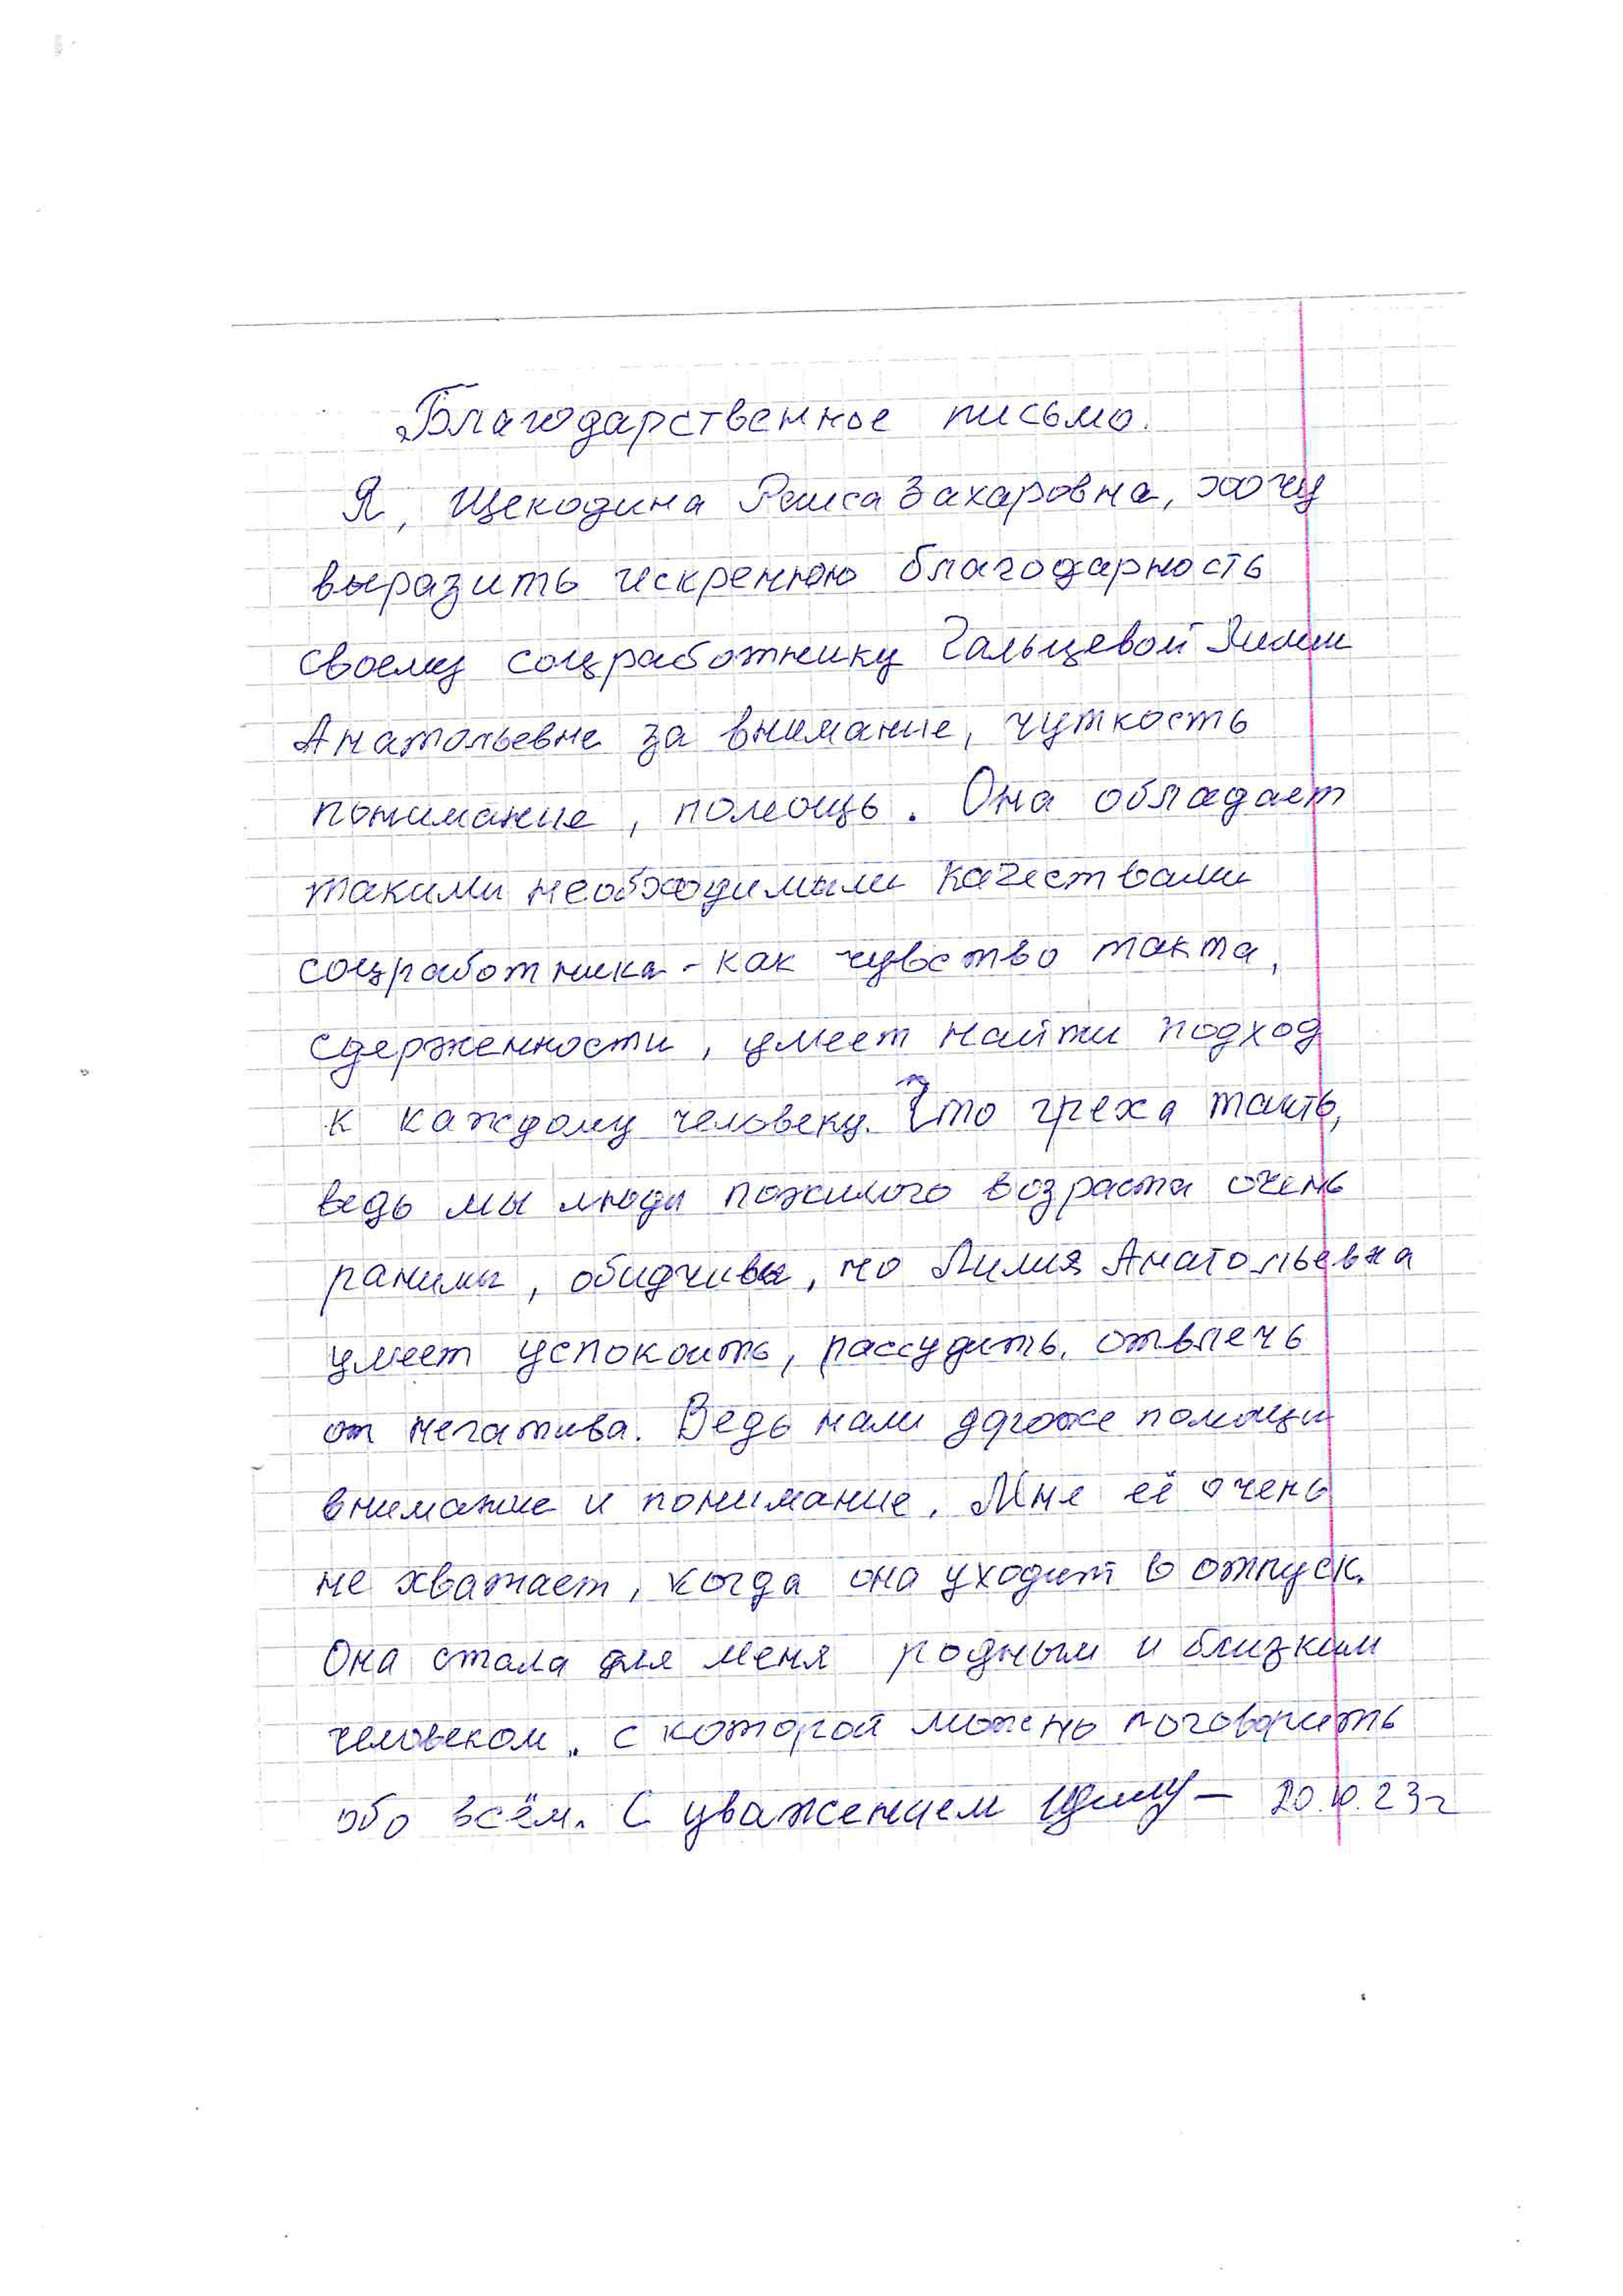 Благодарственное письмо.
Я, Щекодина Раиса Захаровна, хочу
выразить искреннюю благодарность
своему соцработнику Гальцевой Лилии
Анатольевне за внимание, чуткость
понимание, помощь. Она обладает
такими необходимыми качествами
соцработника - как чувство такта,
сдерженности, умеет найти подход
к каждому человеку. Что греха таить,
ведь мы люди пожилого возраста очень
ранимы, обидчивы, но Лилия Анатольевна
умеет успокоить, рассудить, отвлечь
от негатива. Ведь нам дороже помощи
внимание и понимание. Мне её очень
не хватает, когда она уходит в отпуск.
Она стала для меня родным и близким
человеком, с которой можно поговорить
обо всём. С уважением 20.10.23г